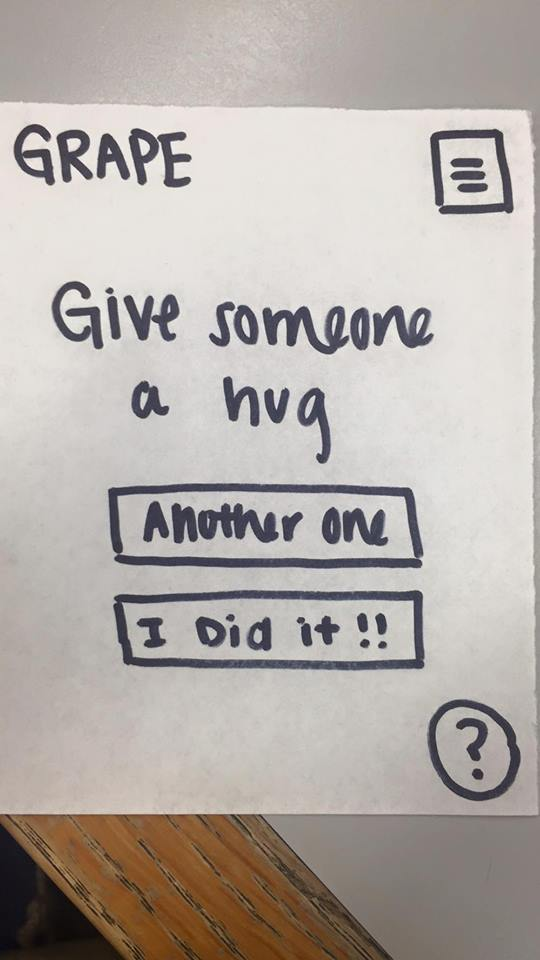 GRAPE
Give someone
a hug
Another one
I Did it !!
?